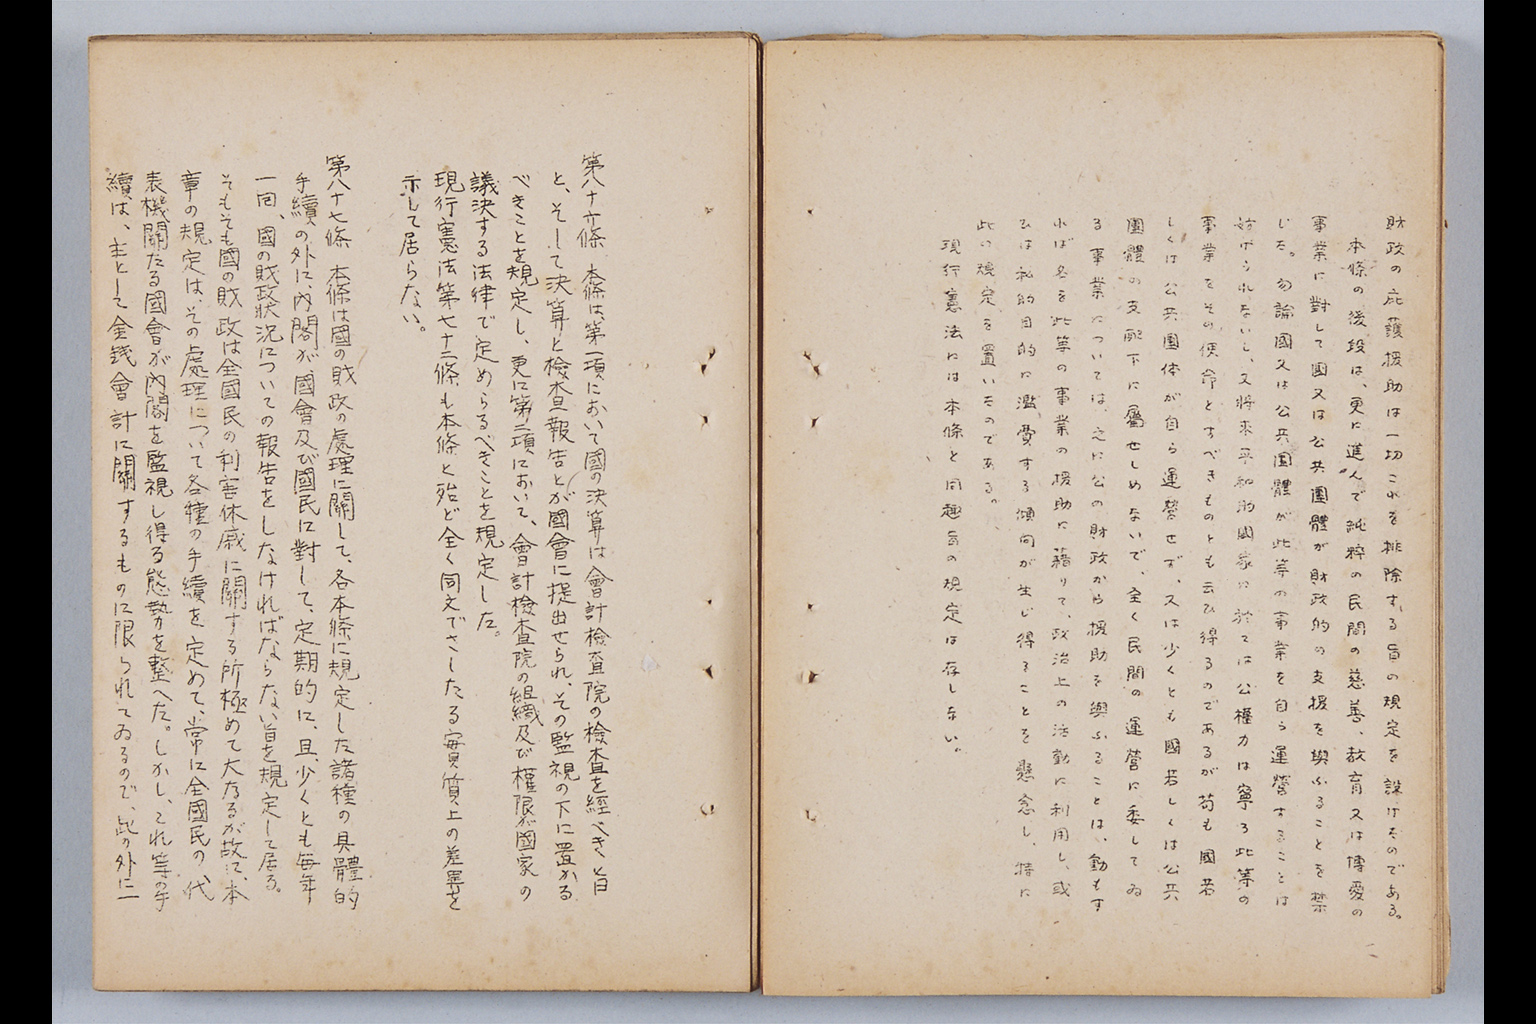 財政の庇護援助は一切これを排除する旨の規定を設けたのである。
本條の後段は、更に進んで純粹の民間の慈善、教育又は博愛の
事業に對して國又は公共團體が財政的の支援を與ふることを禁
じた。勿論國又は公共團體が此等の事業を自ら運營することは
妨げられないし、又將來平和的國家に於ては公權力は寧ろ此等の
事業をその使命とすべきものとも云ひ得るのであるが苟も國若
しくは公共團体が自ら運營せず、又は少くとも國若しくは公共
團體の支配下に屬せしめないで、全く民間の運營に委してゐ
る事業については、之に公の財政から援助を與ふることは、動もす
れば名を此等の事業の援助に藉りて、政治上の活動に利用し、或
ひは私的目的に濫費する傾向が生じ得ることを懸念し、特に
此の規定を置いたのである。
現行憲法には本條と同趣旨の規定は存しない。
第八十六條 本條は、第一項において國の決算は會計檢査院の檢査を經べきこと
と、そして決算と檢査報告とが國會に提出せられ、その監視の下に置かる
べきことを規定し、更に第二項において、會計檢査院の組織及び權限が國家の
議決する法律で定めらるべきことを規定した。
現行憲法第七十二條も本條と殆ど全く同文でさしたる實質上の差異を
示して居らない。
第八十七條 本條は國の財政の處理に關して、各本條に規定した諸種の具體的
手續の外に、內閣が、國會及び國民に對して、定期的に、且、少くとも每年
一回、國の財政狀況についての報告をしなければならない旨を規定して居る。
そもそも國の財政は全國民の利害休戚に關する所極めて大なるが故に、本
章の規定は、その處理について各種の手續を定めて、常に全國民の代
表機關たる國會が內閣を監視し得る態勢を整へた。しかし、これ等の手
續は、主として金錢會計に關するものに限られてゐるので、此の外に一